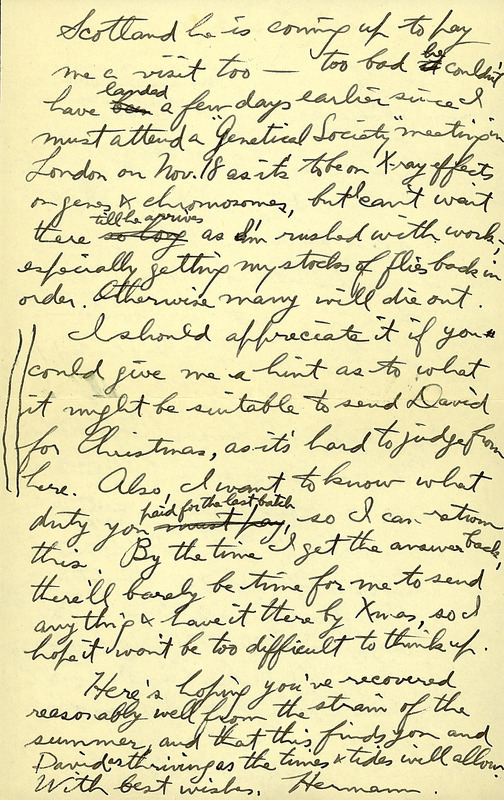 Scotland he is coming up to pay
me a visit too — too bad he couldn't
have landed a few days earlier since I
must attend a "Genetical Society" meeting in
London on Nov. 18 as it's to be on X-ray effects
on genes & chromosomes, but I can't wait
there till he arrives as I'm rushed with work,
especially getting my stocks of flies back in
order. Otherwise many will die out.
I should appreciate it if you
could give me a hint as to what
it might be suitable to send David
for Christmas, as it's hard to judge from
here. Also, I want to know what
duty you paid for the last batch, so I can return
this. By the time I get the answer back,
there'll barely be time for me to send
anything & have it there by Xmas, so I
hope it won't be too difficult to think up.
Here's hoping you've recovered
reasonably well from the strain of the
summer, and that this finds you and
David as thriving as the times & tides will allow
With best wishes, Hermann.